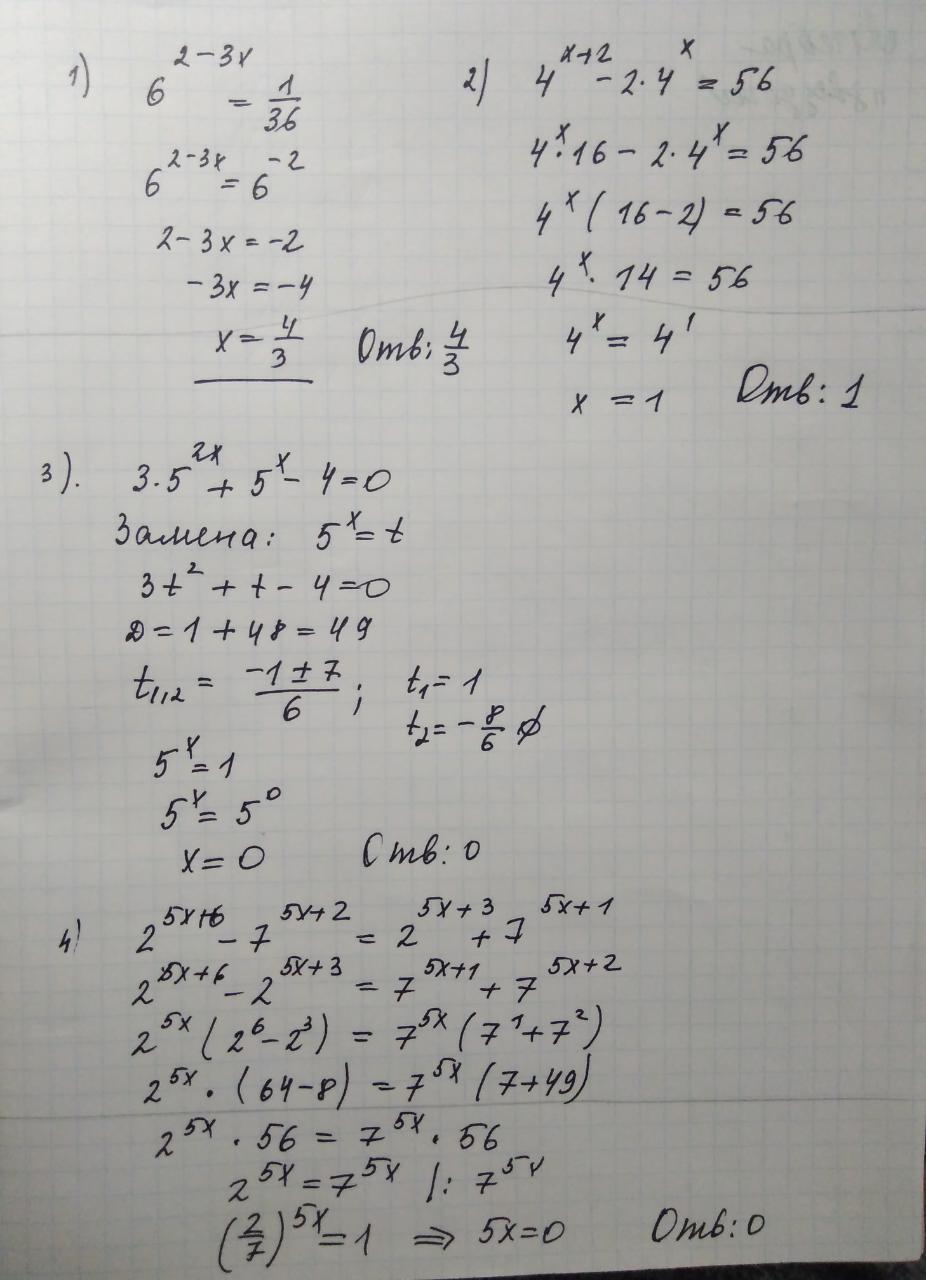 1) 6^{2-3x} = 1/36
6^{2-3x} = 6^{-2}
2-3x = -2
-3x = -4
x = 4/3 Отв: 4/3
2) 4^{x+2} - 2·4^x = 56
4^x·16 - 2·4^x = 56
4^x (16-2) = 56
4^x · 14 = 56
4^x = 4^1
x = 1 Отв: 1
3). 3·5^{2x} + 5^x - 4 = 0
Замена: 5^x = t
3t^2 + t - 4 = 0
D = 1 + 48 = 49
t_{1,2} = (-1 ± 7)/6 ; t_1 = 1
t_2 = -8/6 ∅
5^x = 1
5^x = 5^0
x = 0 Отв: 0
4) 2^{5x+6} - 7^{5x+2} = 2^{5x+3} + 7^{5x+1}
2^{5x+6} - 2^{5x+3} = 7^{5x+1} + 7^{5x+2}
2^{5x} (2^6 - 2^3) = 7^{5x} (7^1 + 7^2)
2^{5x} · (64-8) = 7^{5x} (7+49)
2^{5x} · 56 = 7^{5x} · 56
2^{5x} = 7^{5x} |: 7^{5x}
(2/7)^{5x} = 1 ⇒ 5x = 0 Отв: 0